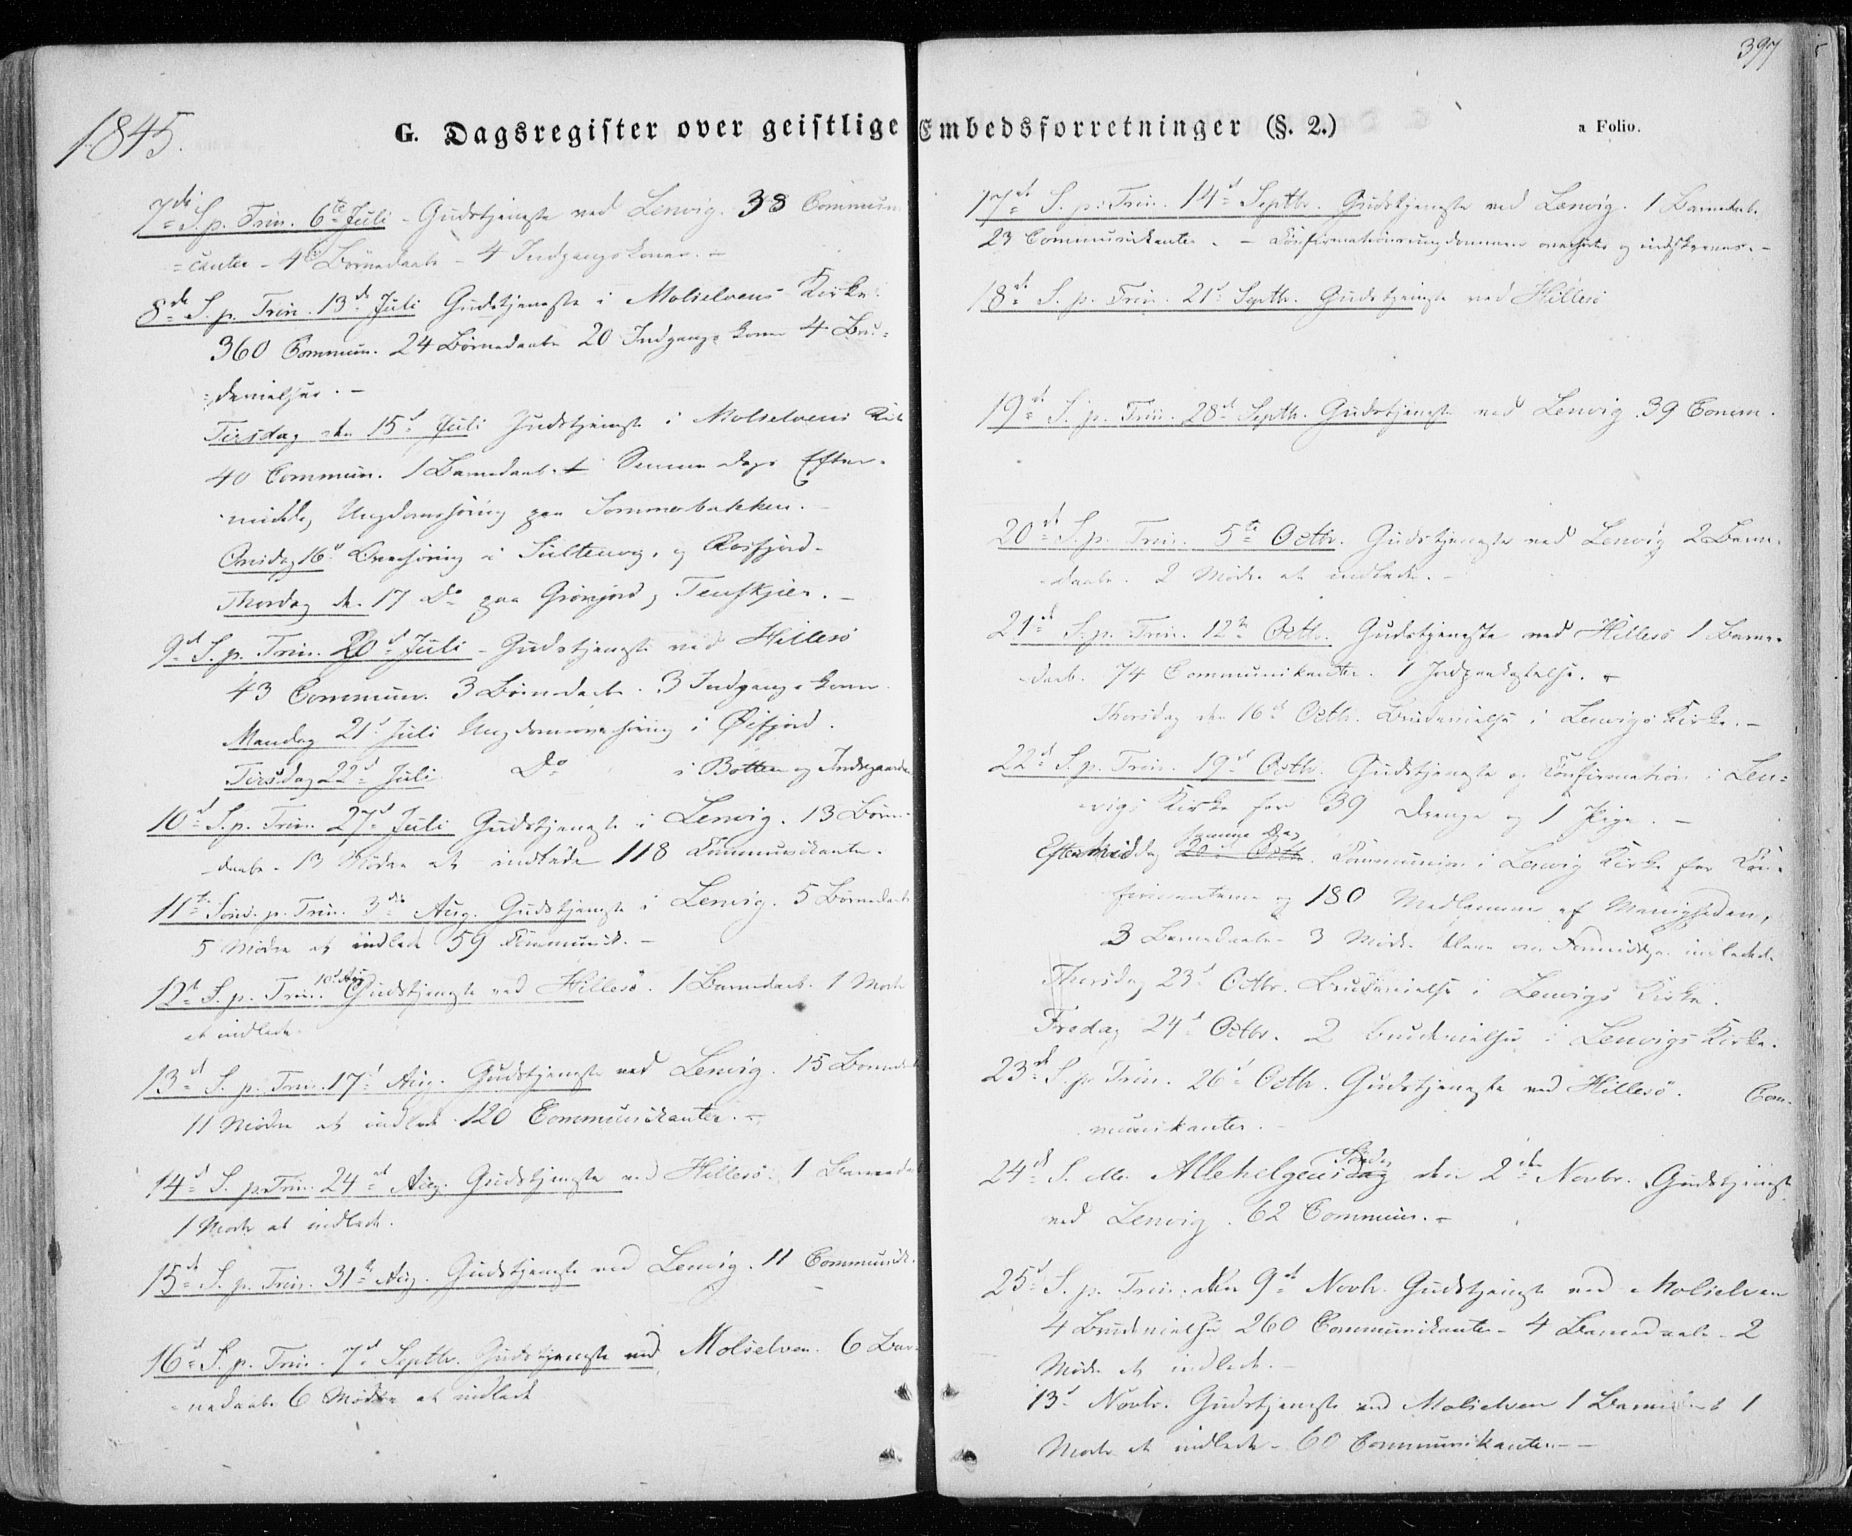 397
1845.
G. Dagsregister over geistlige Embedsforretninger (§. 2.)
a Folio.
7de S. p. Trin. 6te Juli - Gudstjeneste ved Lenvig. 38 Commun
=canter - 4 Børnedaab - 4 Indgangskoner. -
8de S. p. Trin. 13de Juli Gudstjeneste i Molselvens Kirke.
360 Commun. 24 Børnedaabe 20 Indgangskoner 4 Bru-
=devielser. -
Tirsdag den 15d Juli Gudstjeneste i Molselvens Kirke
40 Commun. 1 Barnedaab. Samme Dags Efter-
middag Ungdomshøring paa Sommerbakken. -
Onsdag 16d Overhøring i og Rosfjord.
Thorsdag den 17 Do paa Grønjord, Tenskjer. -
9d S. p. Trin. 20d Juli - Gudstjeneste ved Hillesø
43 Commun. 3 Børnedaab. 3 Indgangskoner.
Mandag 21d Juli Ungdomsoverhøring i Øifjord.
Tirsdag 22d Juli Do i Botten og Indregaarden
10d S. p. Trin. 27d Juli Gudstjeneste i Lenvig. 13 Børne-
daabe. 13 Mødre at indlede 118 Communikanter.
11te Sønd. p. Trin. 3die Aug. Gudstjeneste i Lenvig. 5 Børnedaab
5 Mødre at indlede 59 Communik. -
12te S. p. Trin. 10d Aug Gudstjeneste ved Hillesø. 1 Barnedaab. 1 Moder
at indlede.
13d S. p. Trin. 17d Aug. Gudstjeneste ved Lenvig. 15 Børnedaab
11 Mødre at indlede 120 Communikanter. -
14d S. p. Trin. 24d Aug. Gudstjeneste ved Hillesø. 1 Barnedaab
1 Moder at indlede.
15d S. p. Trin. 31te Aug. Gudstjeneste ved Lenvig. 11 Communik.
16d S. p. Trin. 7d Septbr. Gudstjeneste ved Molselven. 6 Bar-
=nedaabe 6 Mødre at indlede
17d S. p. Trin. 14d Septbr. Gudstjeneste ved Lenvig. 1 Barnedaab.
23 Communikanter. - Confirmationsungdommen overhørtes og indskreves. -
18d S. p. Trin. 21d Septbr. Gudstjeneste ved Hillesø
19d S. p. Trin. 28d Septb. Gudstjeneste ved Lenvig 39 Comm.
20d S. p. Trin. 5te Octbr. Gudstjeneste ved Lenvig 2 Barne-
daabe. 2 Mødre at indlede. -
21d S. p. Trin. 12te Octb. Gudstjeneste ved Hillesø 1 Barne-
daab. 74 Communikanter. 1 Jordpaakastelse. -
Thorsdag den 16d Octb. Brudevielse i Lenvigs Kirke. -
22d S. p. Trin. 19d Octb. Gudstjeneste og Confirmation i Len-
vigs Kirke for 39 Drenge og 1 Pige. -
samme Dag
Eftermiddag 20d Octb. Communion i Lenvig Kirke for Con-
firmanterne og 180 Medlemmer af Menigheden,
3 Barnedaabe 3 Mødre bleve om Formiddagen indledede
Thorsdag 23d Octbr. Brudevielse i Lenvigs Kirke.
Fredag 24d Octbr. 2 Brudevielser i Lenvigs Kirke.
23d S. p. Trin. 26d Octb. Gudstjeneste ved Hillesø. Com-
munikanter. -
Søndag
24d S. Allehelgensdag den 2den Novbr. Gudstjeneste
ved Lenvig. 62 Commun. -
25d S. p. Trin. den 9d Novb. Gudstjeneste ved Molselven
4 Brudevielser 260 Communikanter - 4 Barnedaabe - 2
Mødre at indlede. -
13d Novbr. Gudstjeneste ved Molselven 1 Barnedaab 1
Moder at indlede - 60 Communikanter. -